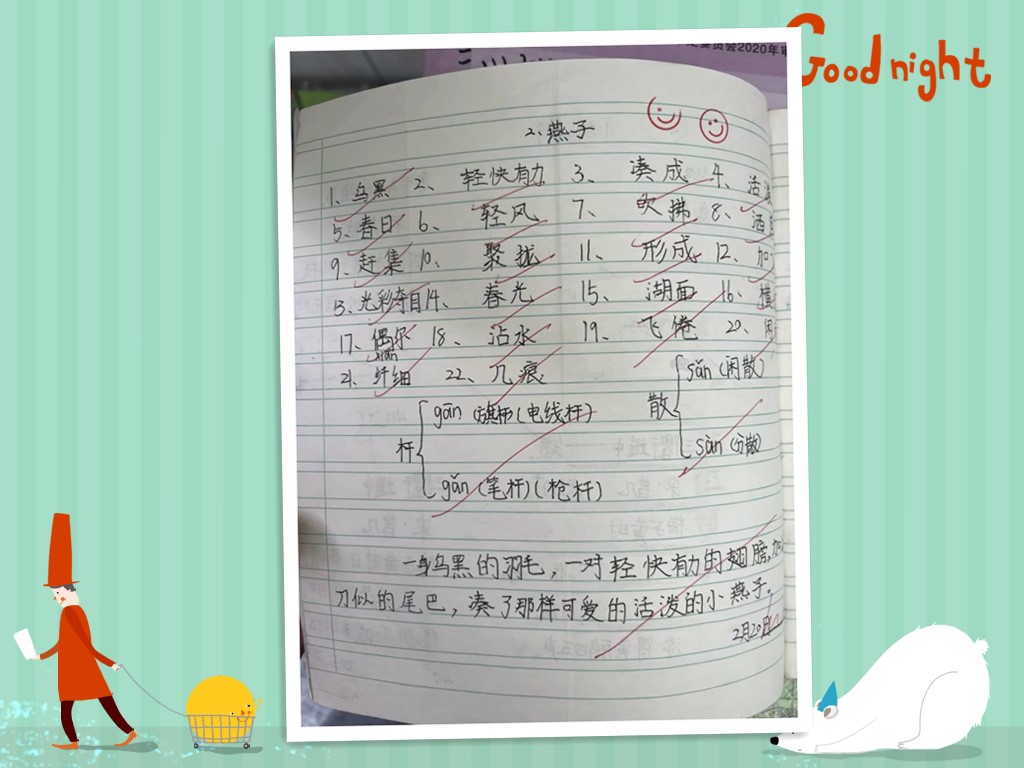 Good night
委员会2020年
2、燕子
1、乌黑 2、轻快有力 3、凑成 4、活
5、春日 6、轻风 7、吹拂 8、洒
9、赶集 10、聚拢 11、形成 12、加
13、光彩夺目 14、春光 15、湖面 16、
17、偶尔 18、沾水 19、飞倦 20、闲
xiān
21、纤细 22、几痕
散 sǎn (闲散)
sàn (分散)
杆 gān (旗杆)(电线杆)
gǎn (笔杆)(枪杆)
一身乌黑的羽毛，一对轻快有力的翅膀，加
刀似的尾巴，凑了那样可爱的活泼的小燕子。
2月20日